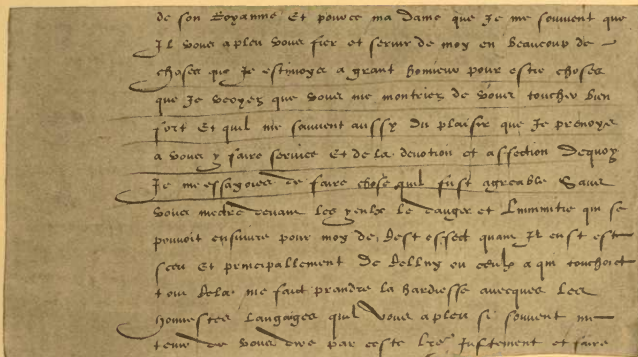 de son Royaume Et pource ma dame que Je me souvient que
Il vous a pleu vous fier et servir de moy en beaucoup de
choses que Je estimoye a grant honneur pour estre choses
que Je veoyez que vous me montriez de vous toucher bien
fort Et quil me souvient aussy du plaisir que Je prenoye
a vous y faire service Et de la devotion et affection dequoy
Je me essayoies de faire chose quil fust agreable Sans
vous mectre devant les yeulx le danger et Linimitie qui se
pouvoit ensuivre pour moy de cest effect quant Il eust este
sceu Et principallement de celluy ou ceulx a qui touchoit
tout cela me faict prandre la hardiesse avecques Les
honnestes Langaiges quil vous a pleu si souvent me
tenir de vous dire par ceste lre Justement et faire